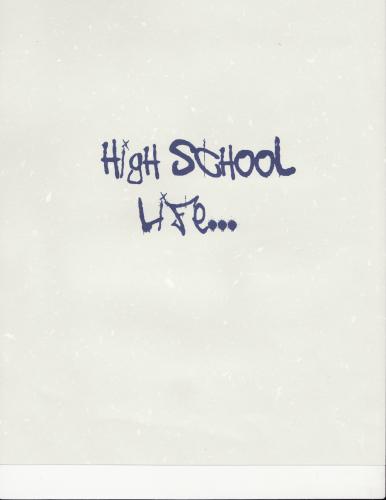 HigH SCHOOL
LiFe...